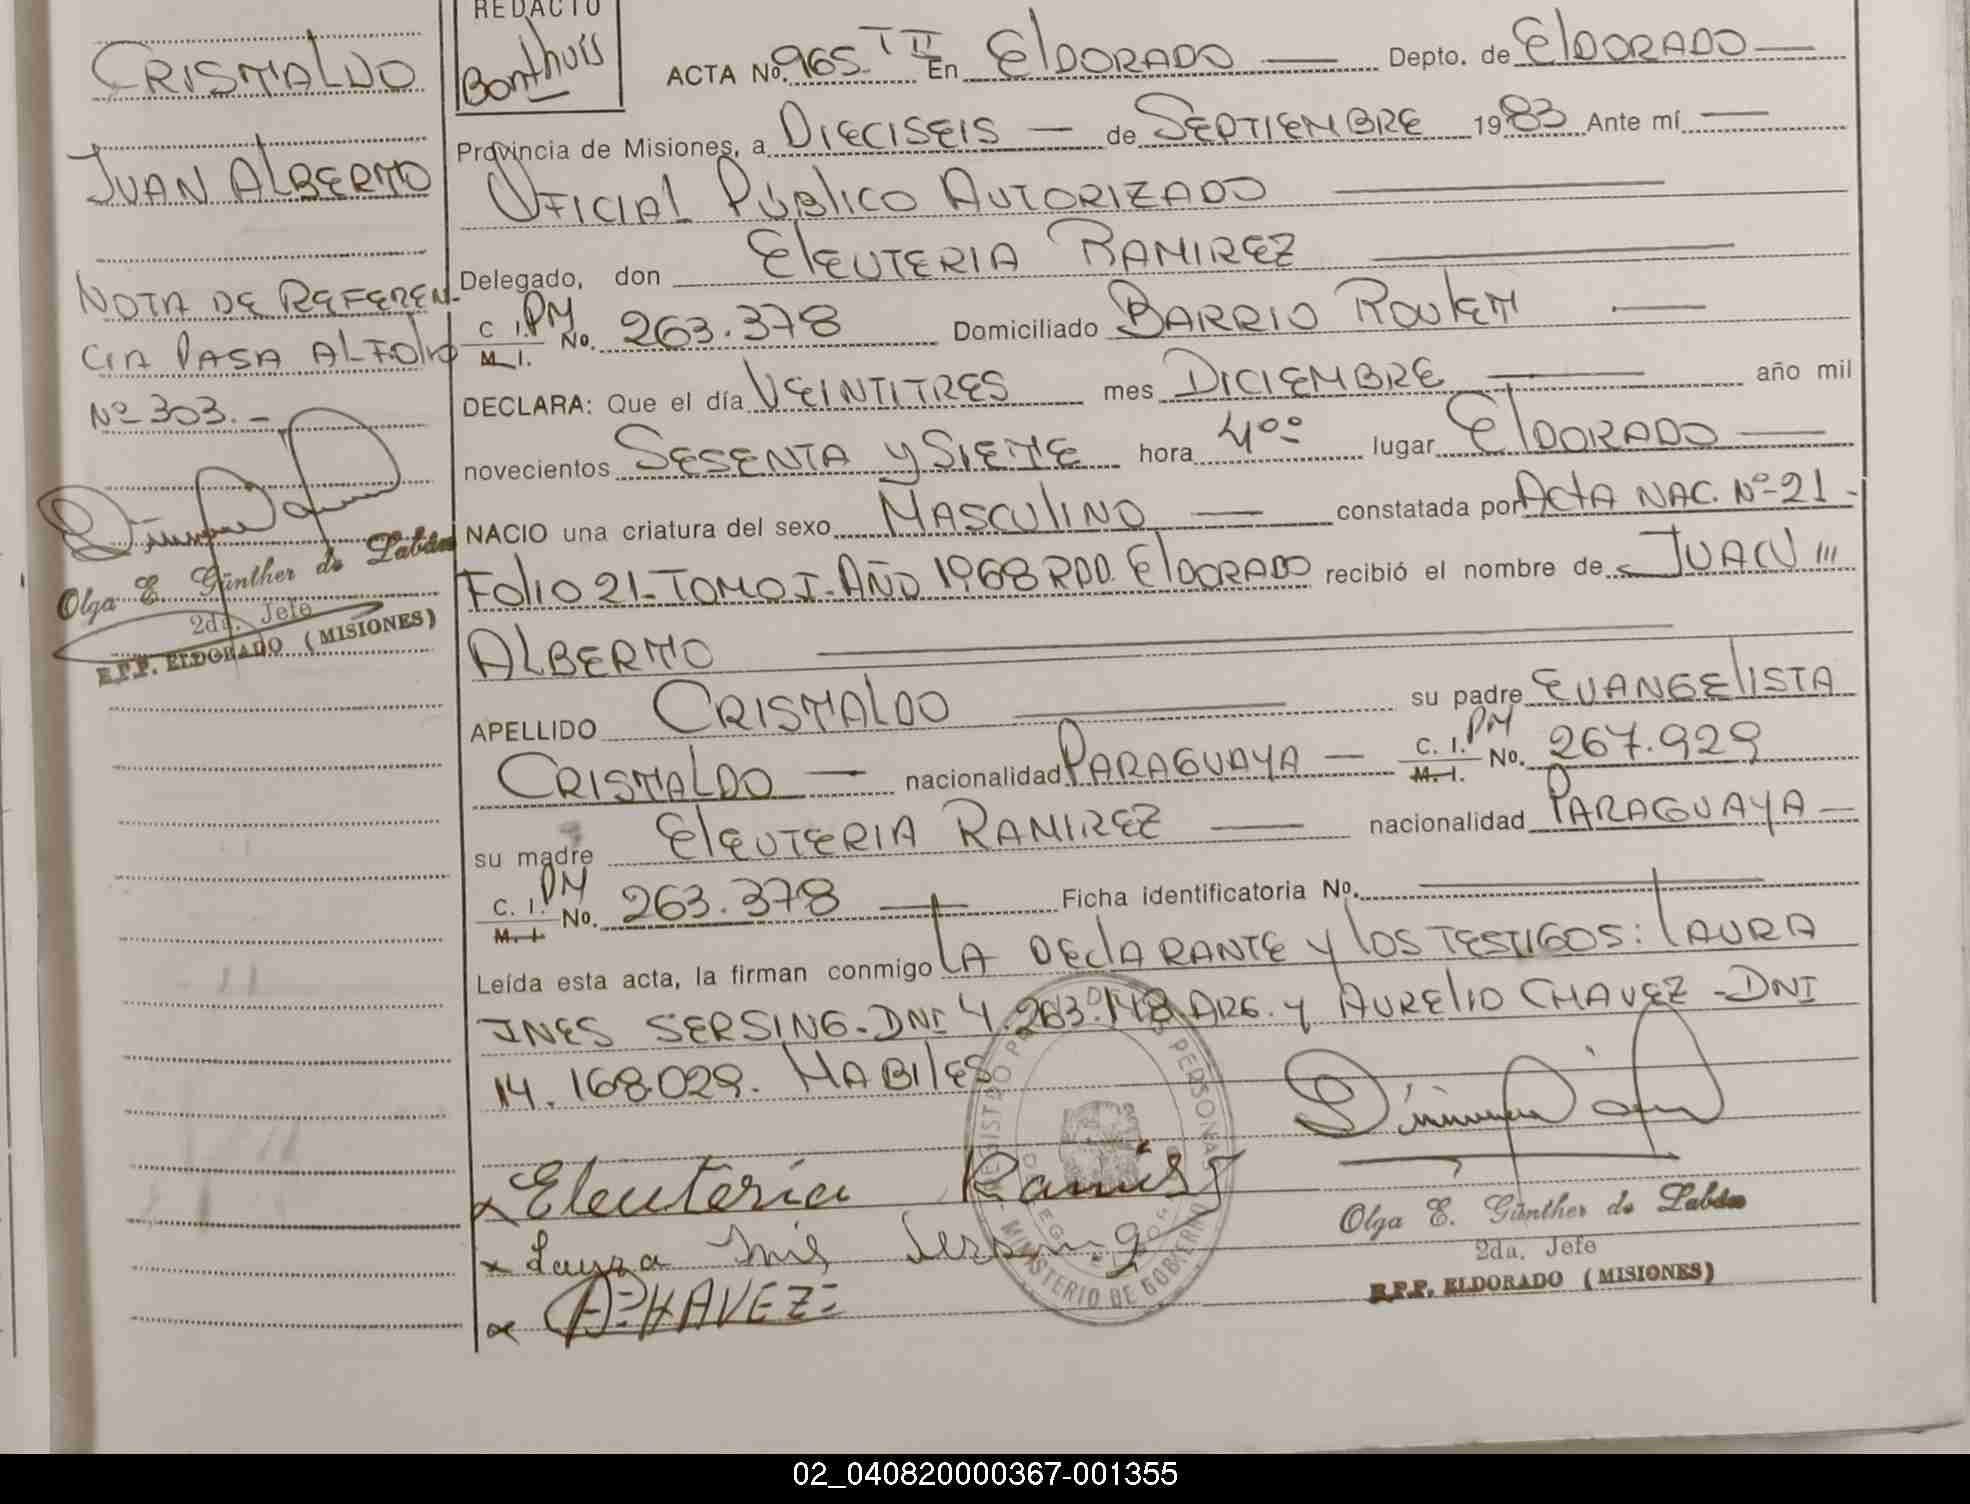 CRISTALDO
JUAN ALBERTO
NOTA DE REFEREN-
CIA PASA AL FOLIO
Nº 303.-
Olga E. Günther de Labán
2da. Jefe
R.P.P. ELDORADO (MISIONES)
REDACTO
Bonthuis
ACTA No. 965 T II En ELDORADO Depto. de ELDORADO
Provincia de Misiones, a DIECISEIS de SEPTIEMBRE 1983 Ante mí
OFICIAL PÚBLICO AUTORIZADO
Delegado, don ELEUTERIA RAMIREZ
C. I. PM M. I. No. 263.378 Domiciliado BARRIO
DECLARA: Que el día VEINTITRES mes DICIEMBRE año mil
novecientos SESENTA Y SIETE hora 4ºº lugar ELDORADO
NACIO una criatura del sexo MASCULINO constatada por ACTA NAC. Nº 21-
FOLIO 21-TOMO I-AÑO 1968 RPP. ELDORADO recibió el nombre de JUAN
ALBERTO
APELLIDO CRISTALDO su padre EVANGELISTA
CRISTALDO nacionalidad PARAGUAYA C. I. PM M. I. No. 267.929
su madre ELEUTERIA RAMIREZ nacionalidad PARAGUAYA
C. I. PM M. I. No. 263.378 Ficha identificatoria No.
Leída esta acta, la firman conmigo LA DECLARANTE Y LOS TESTIGOS: LAURA
INES SERSING-DNI 4.263.148.ARG. Y AURELIO CHAVEZ-DNI
14.168.029. HABILES
Eleuteria Ramirez
Laura Inés Sersing
A. CHAVEZ
REGISTRO PERSONAS
MINISTERIO DE GOBIERNO
Olga E. Günther de Labán
2da. Jefe
R.P.P. ELDORADO (MISIONES)
02_040820000367-001355